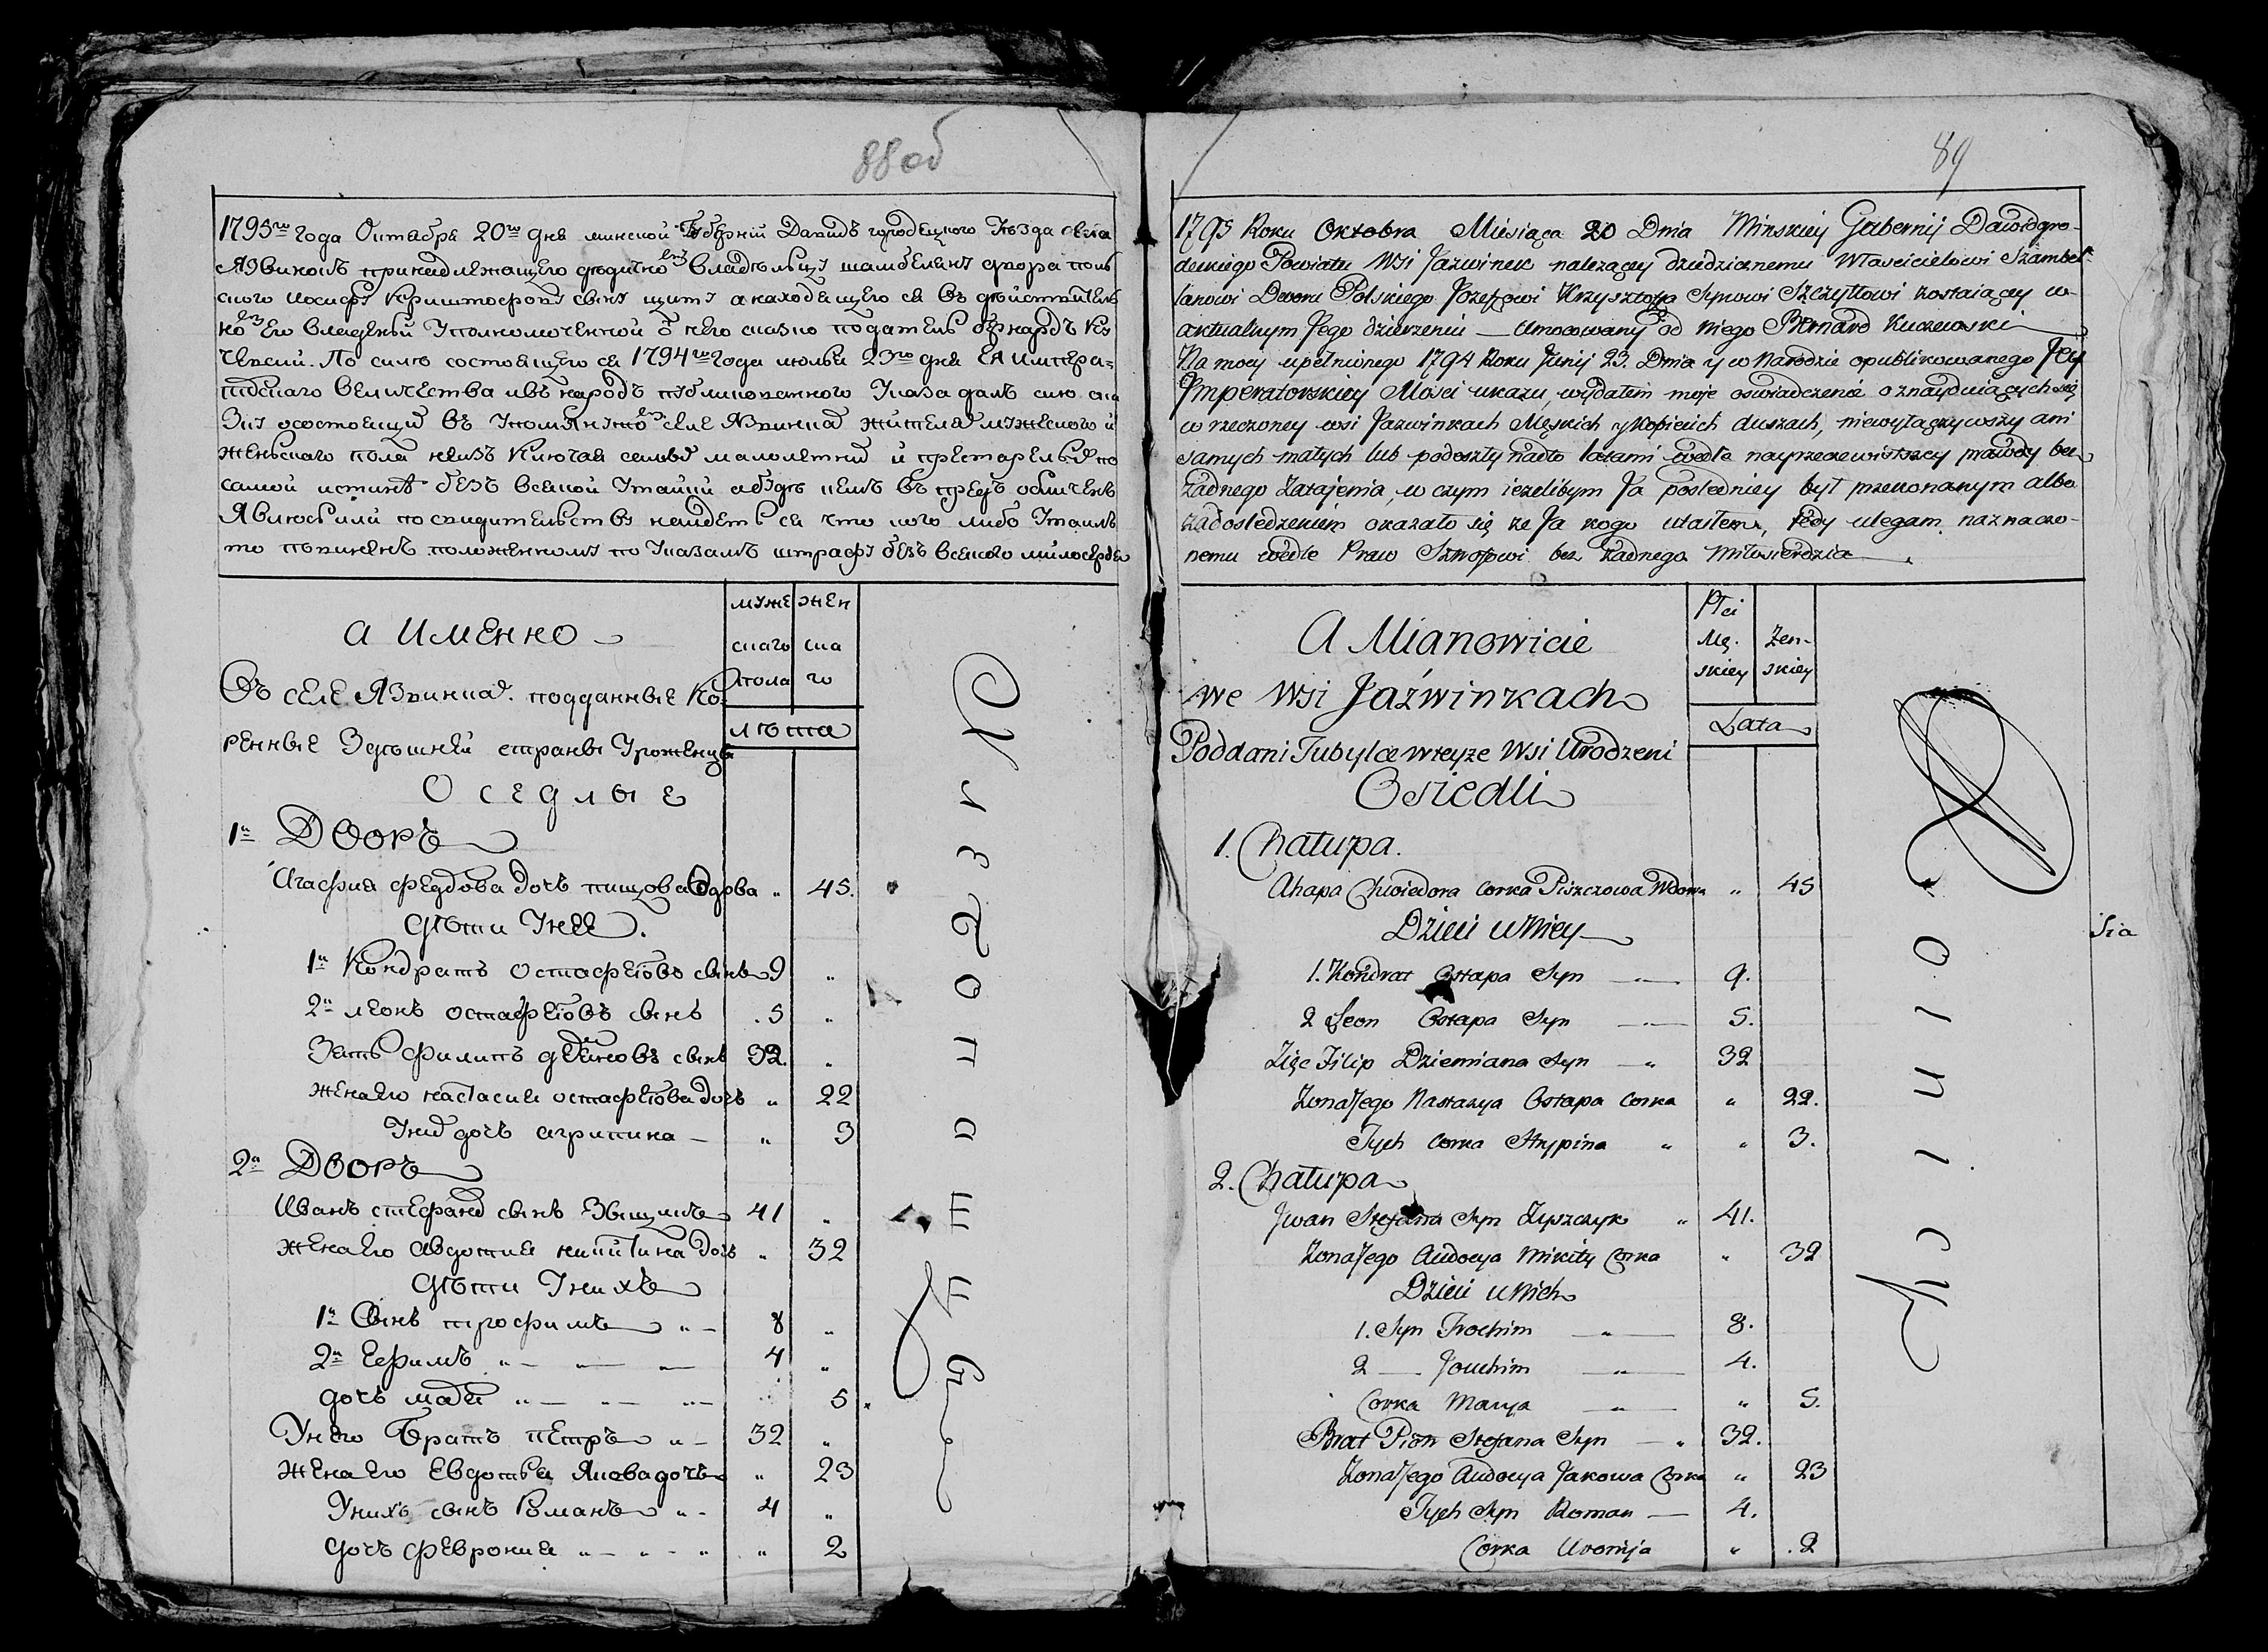 88 об
1795го года Октября 20го дня минской Губернïи Давидъ городецкого Уезда села
Язвинокъ принадлежащего дедично владельцу шамбеляну двора поль
ского иосифу Криштофову сыну щиту а находящего ся въ действитель
но его владенïй Уполномоченной от него бернардъ Ку
чевский. По силе состоящего ся 1794го года июня 23го дня Ея импера=
торского величества и въ народъ публикованного Указа далъ сию ска
Зку осостоящихъ въ Упомянутомъ селе Язвинкахъ жителяхъ мужеского и
женского пола неизъключая самыхъ малолетнихъ и престарелыхъ по
самой истине безъ всякой Утайки а буде кемъ въ предь обличенъ
Явлюсь или по свидетельству найдетъ ся что кого либо Утаилъ
то повиненъ положенному по Указамъ штрафу безъ всякого милосердия
а именно
муже скаго пола
жен ска го
лета
Въ селе Язвинкахъ подданные Ко
ренные Здешней страны Уроженцы
Оседлые
1й Дворъ
Агафия федорова дочь пищова Вдова " 45.
дети Унее.
1й Кондратъ остафеювъ сынъ 9 "
2й леонъ остафеювъ сынъ 5 "
Зять филипъ демяновъ сынъ 32. "
жена его настасия остафеюва дочь " 22
Унихъ дочь агрипина — " 3
2й Дворъ
Иванъ стефановъ сынъ Зыщикъ 41 "
жена его авдотия никитина дочь " 32
дети Унихъ
1й Сынъ трофимъ " — 8 "
2й Ефимъ " — " — " — 4 "
дочь марья " — " — " — 5
Унего Братъ петръ " — 32 "
жена его Евдотья Яковва дочь " 23
Унихъ сынъ Романъ " - 4 "
дочь феврония " — " — " " 2
89
1795 Roku Oktobra Miesiąca 20 Dnia Minskiey Gubernij Dawidgro-
deckiego Powiatu Wsi Jaźwinek należącey dziedzicznemu Włascicielowi Szambel-
lanowi Dworu Polskiego Jozefowi Krzysztofa Synowi Szczyttowi zostaiącey w
aktualnym Jego dzierzeniu — Umocowany od niego Bernard Kuczewski
Na mocy upełnionego 1794 Roku Junij 23. Dnia y w Narodzie opublikowanego Jey
Imperatorskiey Mości ukazu, wydałem moje oswiadczenie o znayduiących się
w rzeczoney wsi Jazwinkach Męskich y Kobiecich duszach, niewyłączywszy ani
samych małych lub podeszły nadto latami wedle nayrzeczewistszey prawdy bez
żadnego zatajenia, w czym ieżelibym Ja posledniey był przekonanym albo
za dosledzeniem okazało się że Ja kogo utaiłem, tedy ulegam naznaczo-
nemu wedle Praw Sztrofowi bez żadnego Miłosierdzia
A Mianowicie
Płci Mę- skiey
Żen- skiey
Lata
we Wsi Jaźwinkach
Poddani Tubylce w teyże Wsi Urodzeni
Osiedli
1. Chałupa.
Ahapa Chwiedora Corka Piszczowa Wdowa " 45
Dzieci u Niey
1. Kondrat Ostapa Syn — 9.
2 Leon Ostapa Syn — 5.
Zięc Filip Dziemiana Syn — " 32
Żona Jego Nastazya Ostapa Corka " 22.
Tych Corka Ahrypina " " 3.
2. Chałupa
Jwan Stefana Syn Zyszczyk " 41.
Żona Jego Audocya Mikity Corka " 32
Dzieci u Nich
1. Syn Trochim — " — 8.
2 — Jouchim — " — 4.
Corka Marya — " — " 5.
Brat Piotr Stefana Syn — " 32.
Żona Jego Audocya Jakowa Corka " 23
Tych Syn Roman — 4.
Corka Uronija " 2
sia